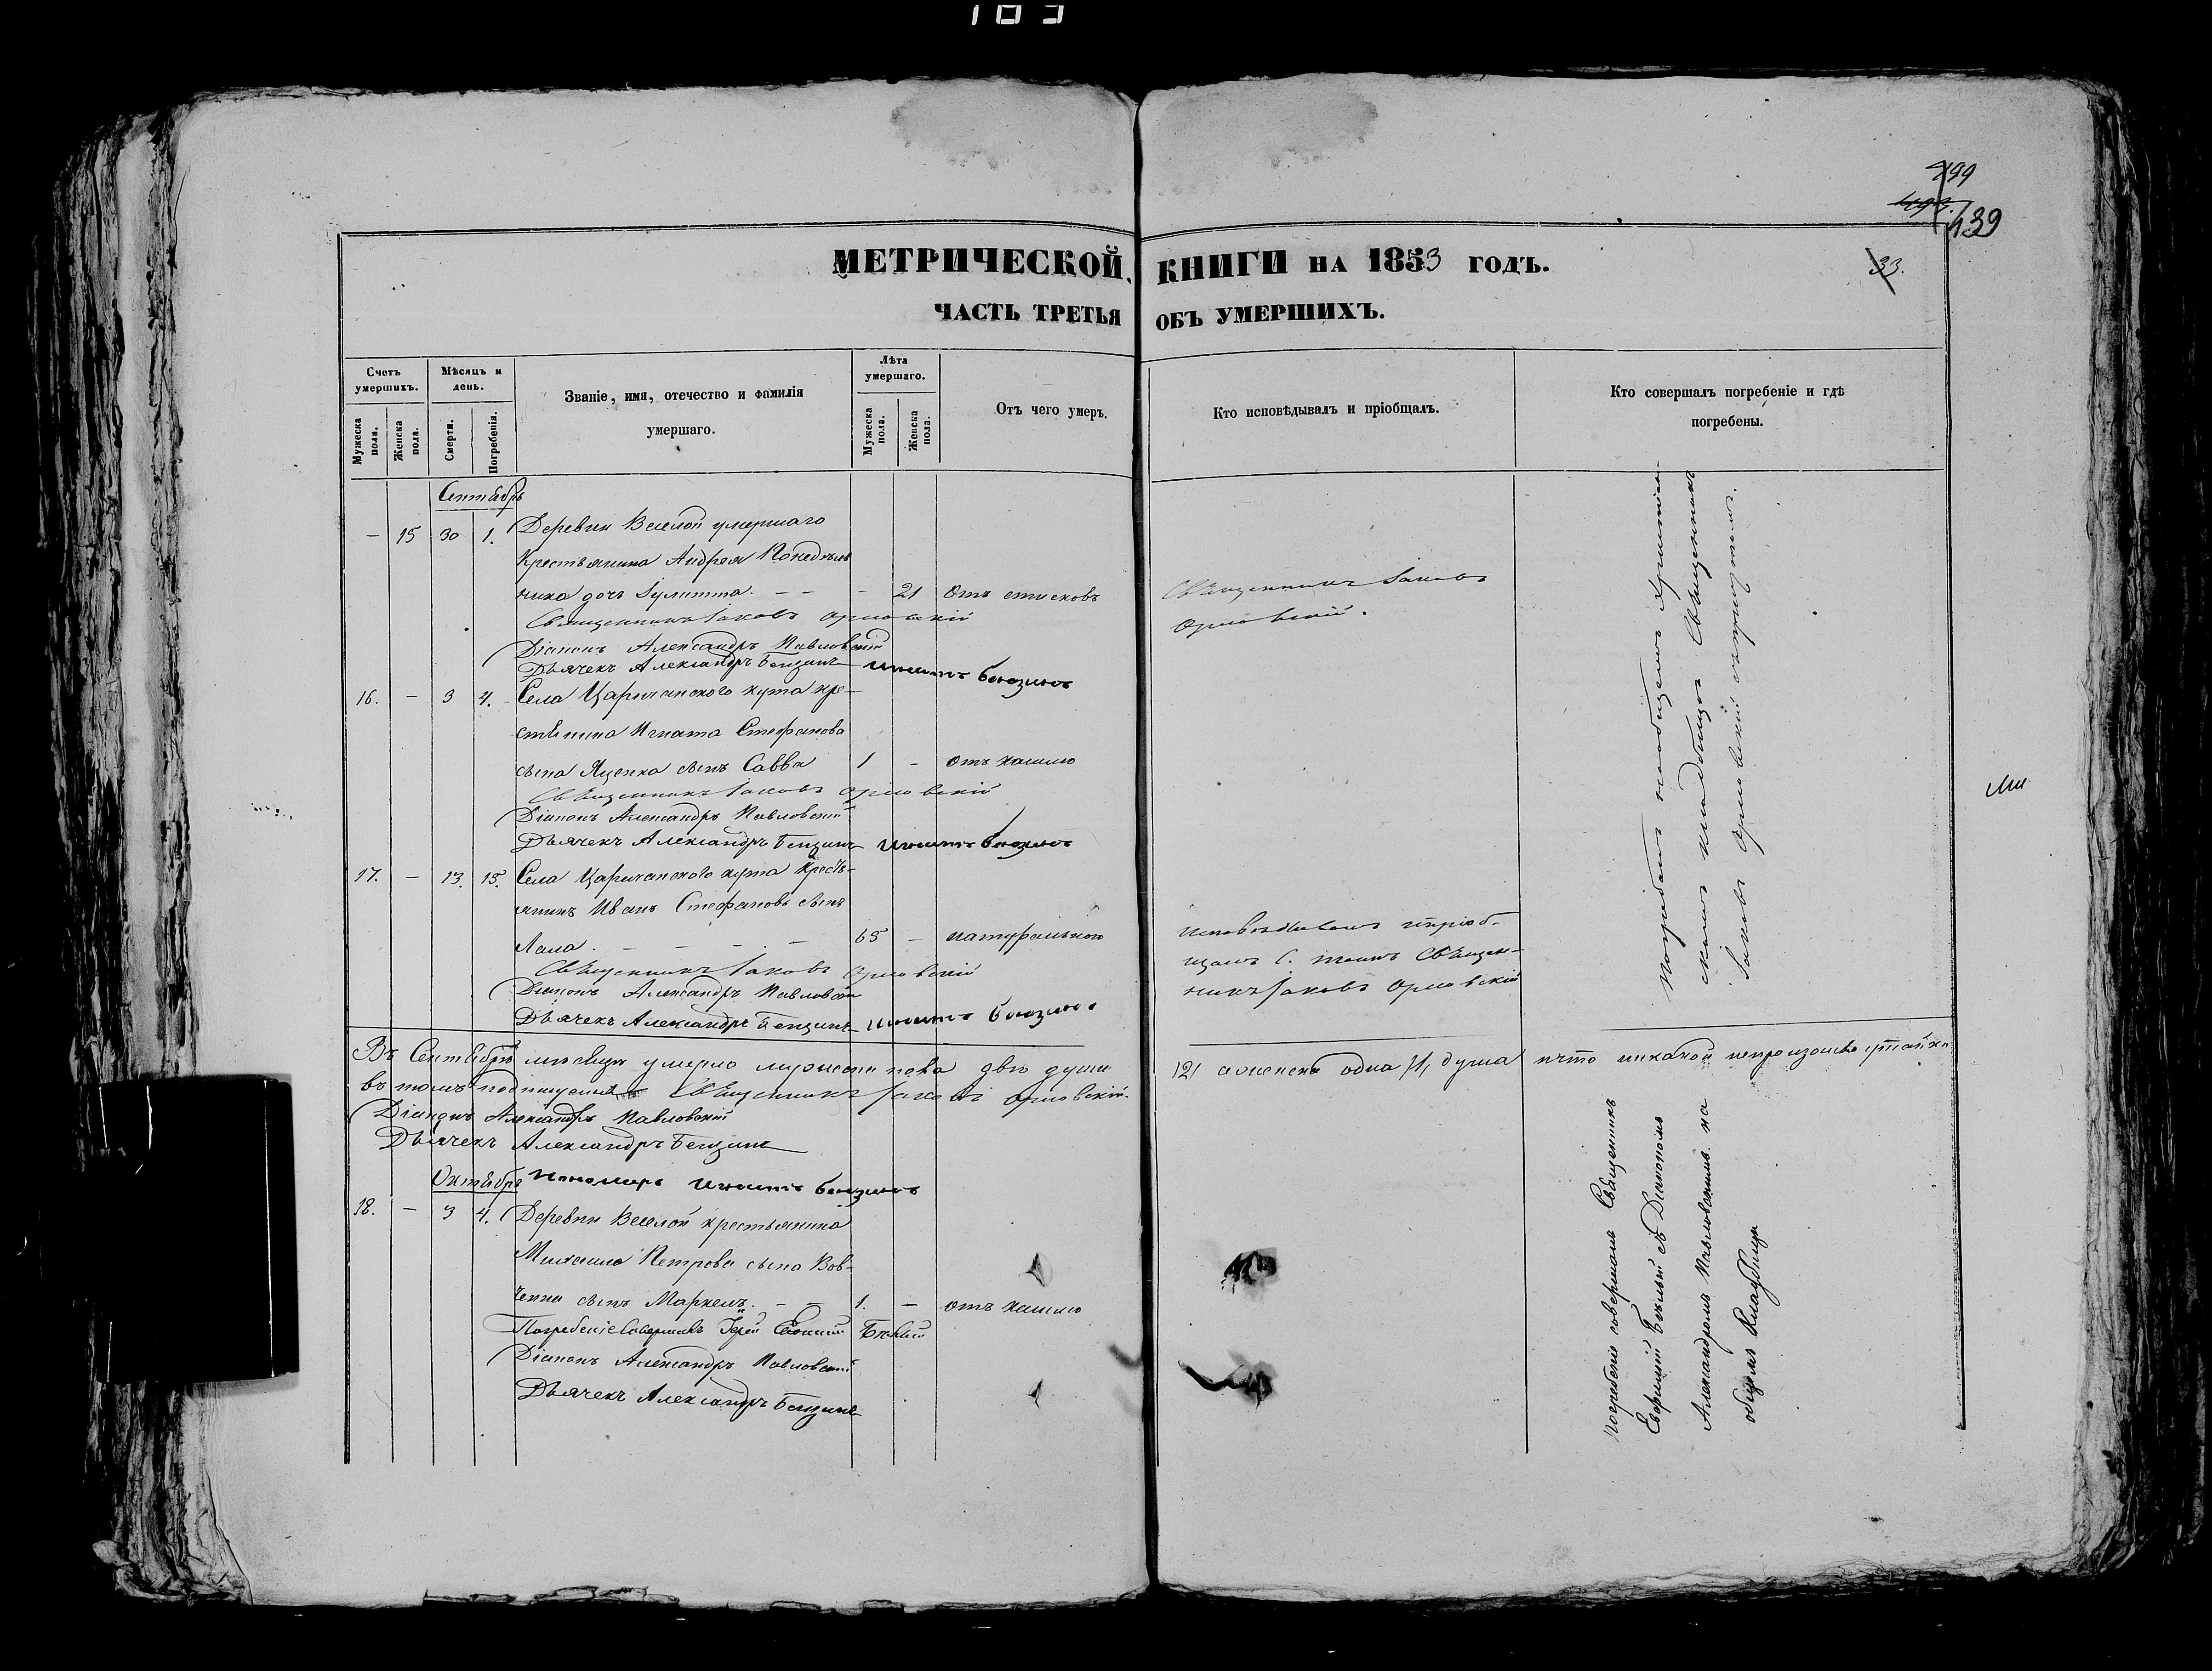 183
499
139
33.
МЕТРИЧЕСКОЙ КНИГИ НА 1853 ГОДЪ.
ЧАСТЬ ТРЕТЬЯ ОБЪ УМЕРШИХЪ.
Счетъ умершихъ.
Мѣсяцъ и день.
Званіе, имя, отечество и фамилія умершаго.
Лѣта умершаго.
Отъ чего умеръ.
Кто исповѣдывалъ и пріобщалъ.
Кто совершалъ погребеніе и гдѣ погребены.
Мужеска пола.
Женска пола.
Смерти.
Погребенія.
Мужеска пола.
Женска пола.
Сентябрь
— 15 30 1. Деревни Веселой умершаго
крестьянина Андрея Понедѣль
ника дочь Іулитта. — — — 21 Отъ
Священникъ Іаковъ
Орловскій.
Священникъ Іаковъ Орловскій
Діаконъ Александръ Павловскій
Дьячекъ Александръ
16. — 3 4. Села Царичанского кута кре-
стянина Игната Стефанова
сына Яценка сынъ Савва 1 — отъ кашлю
Священникъ Іаковъ Орловскій
Діаконъ Александръ Павловскій
Дьячекъ Александръ
17. — 13. 15. Села Царичанского кута Кресть-
янинъ Иванъ Стефановъ сынъ
Лала. — — — — 65 — натурально
Исповѣдывалъ и пріоб-
щалъ С. таинъ Священ-
никъ Іаковъ Орловскій
Священникъ Іаковъ Орловскій
Діаконъ Александръ Павловскій
Дьячекъ Александръ
Погребалъ на общемъ христіан
скомъ кладбищѣ Священникъ
Іаковъ Орловскій съ причтомъ.
Въ Сентябрѣ мѣсяцѣ умерло мужеска пола двѣ души /2/ а женска одна /1/ душа и что никакой непроизошло
въ томъ подписуемся Священникъ Іаковъ Орловскій.
Діаконъ Александръ Павловскій
Дьячекъ Александръ
Пономарь
Октябрь
18. — 3 4. Деревни Веселой крестьянина
Михаила Петрова сына Вов-
ченка сынъ Маркелъ. — — 1. — отъ кашлю
Погребеніе совершалъ Іерей Евфимій Бѣлый
Діаконъ Александръ Павловскій
Дьячекъ Александръ
Погребеніе совершалъ Священникъ
Евфимій Бѣлый съ Діакономъ
Александромъ Павловскимъ на
общемъ Кладбищѣ